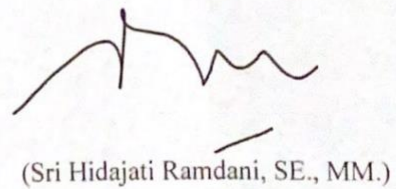 (Sri Hidajati Ramdani, SE., MM.)